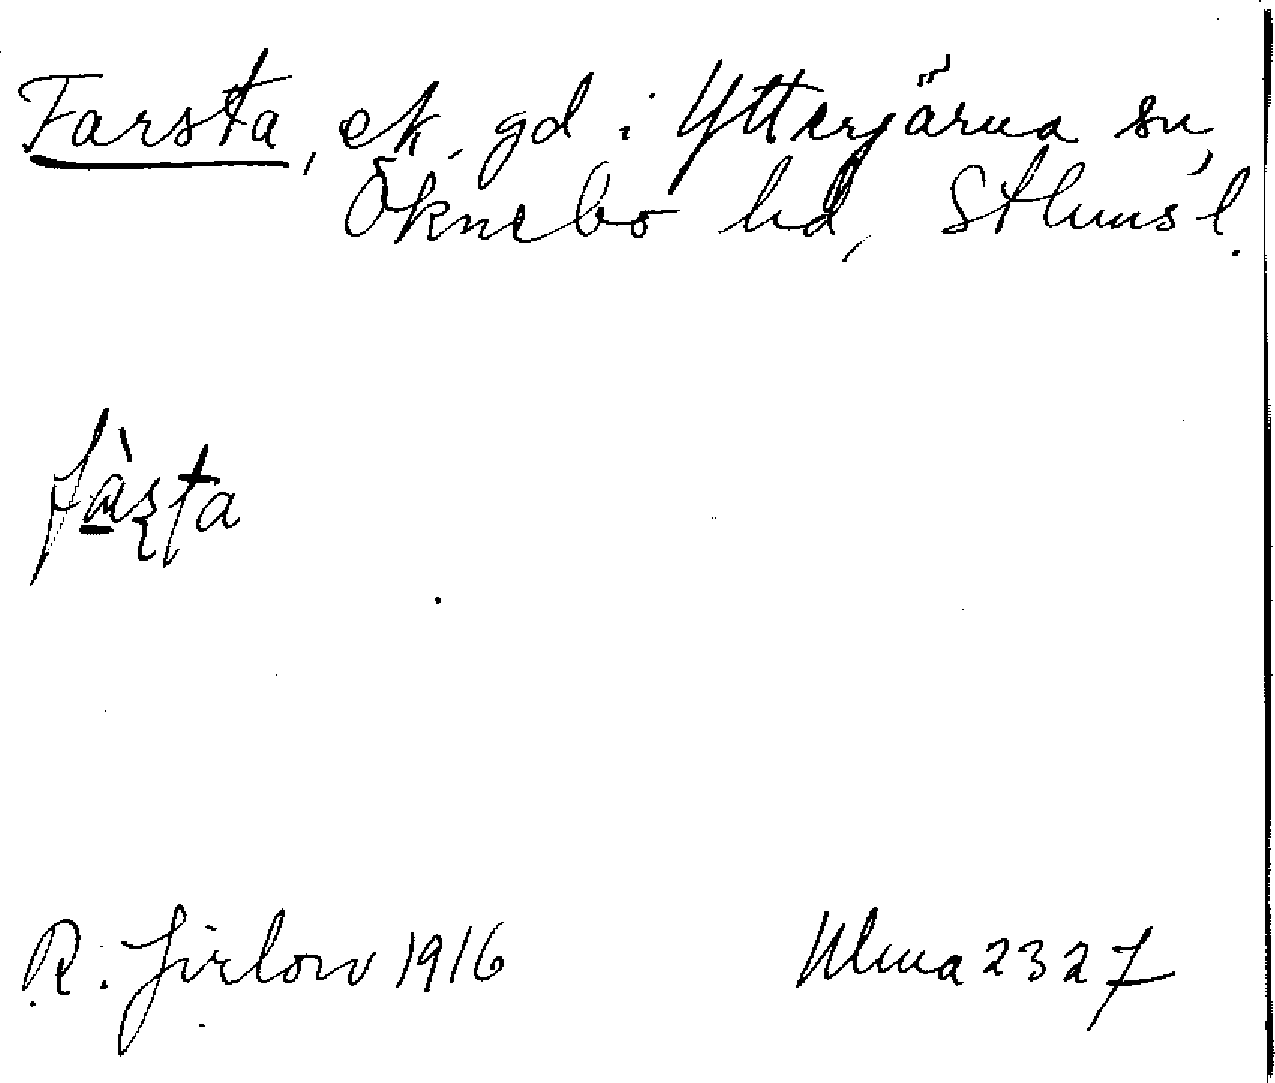 Farsta, ek. gd i Ytterjärna sn,
Öknebo hd, Sthms l.
fàʂta
R. Jirlow 1916
Ulma 2327